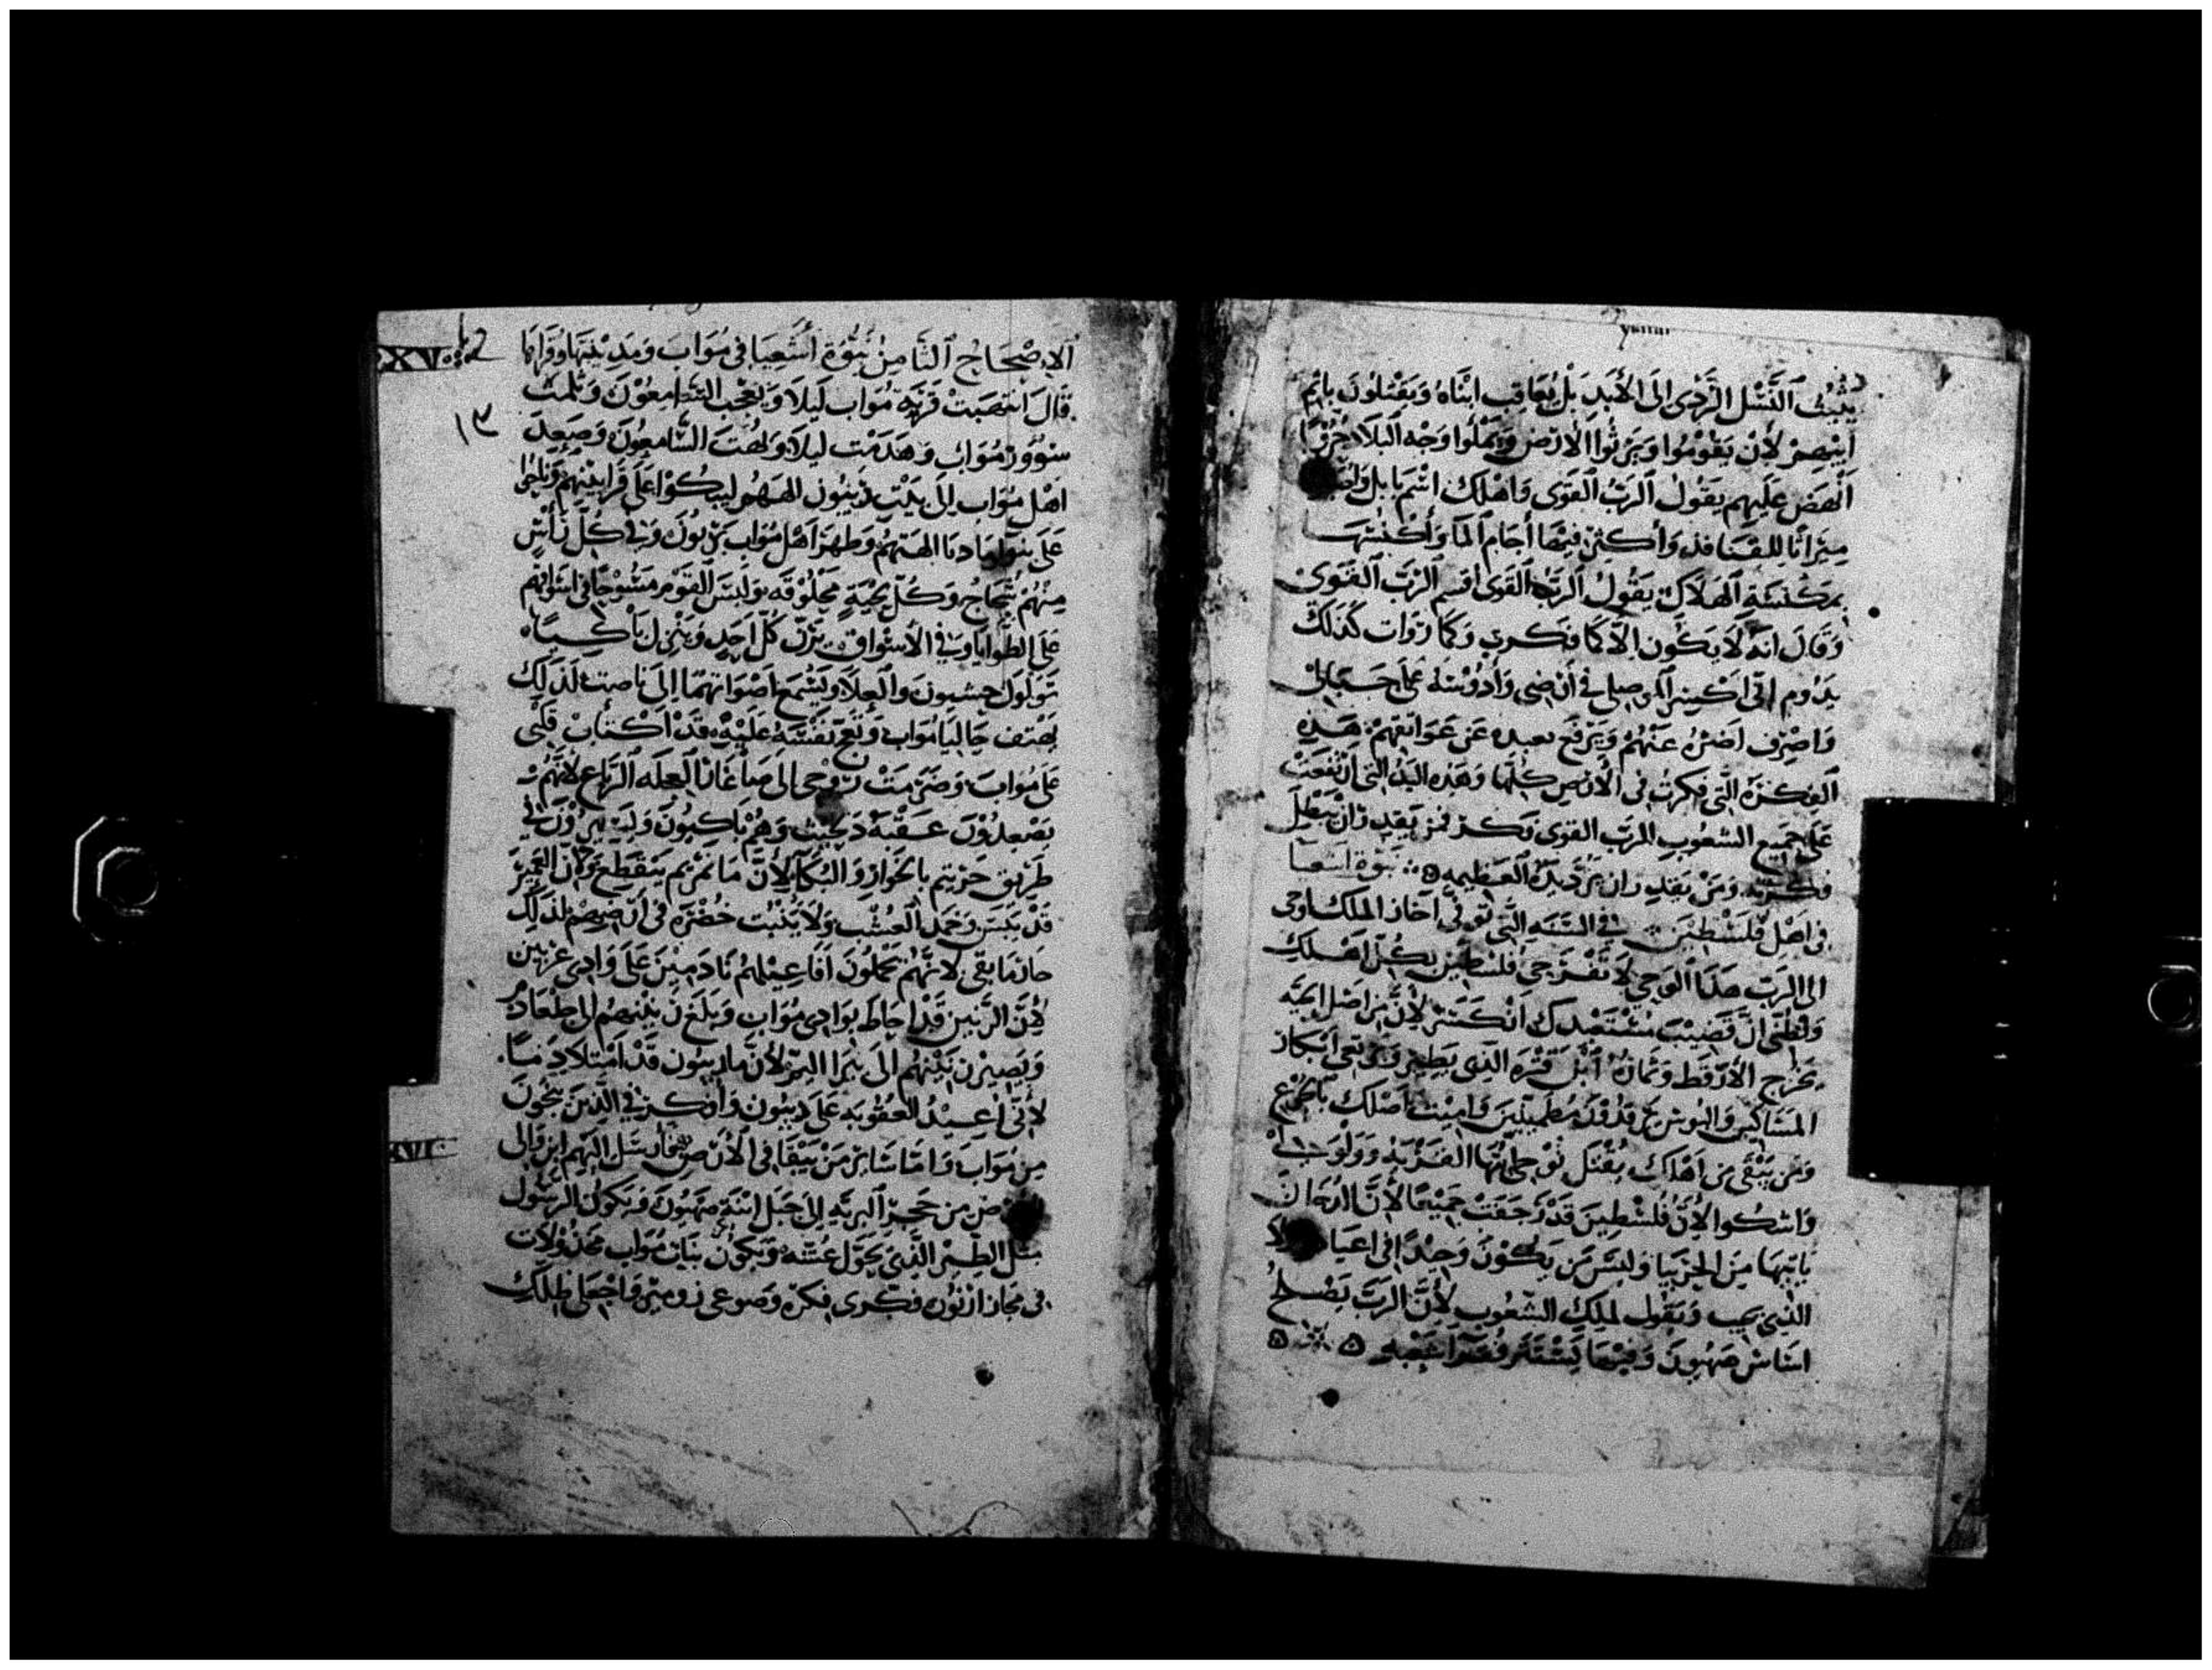 يثبت النسل الردى الى الأبد بل يعاقب ابناه ويقتلون باثم
ابيهم لأن يقوموا ويرثوا الارض ويملوا وجه البلاد حزنا
انهض عليهم يقول الرب القوى واهلك اسم بابل
ميراثا للقنافد وأكثر فيها أجام الما وأكنسها
بمكنسة الهلاك يقول الرب القوى اقسم الرب القوى
وقال انه لا يكون الا كما فكرت وكما روات كذلك
يدوم انى اكسر الموصلى في أرضى وأدوسه على جبالى
واصرف عنهم ويرتفع عن عواتقهم هذه
الفكرة التى فكرت فى الأرض كلها وهذه اليد التى ارتفعت
على جميع الشعوب الرب القوى فكر فمن يقدر ان يبطل
فكرته ومن يقدر ان يرد يده العظيمه نبوة اشعيا
فى اهل فلسطين في السنه التى توفى آحاز الملك اوحى
الى الرب هذا الوحى لا تفرحى فلسطين بكل اهلك
وتظنى ان قضيب مستعبدك انكسر لأن من اصل الحيه
يخرج الأرقط الذى يطير وترتعى ابكار
المساكين والبوس يرقدون مطمينين واميت اصلك بالجوع
ومن يبقى من اهلك يقتل نوحى ايتها القريه وولولى
واشكوا لأن فلسطين قد رجفت جميعا لأن الدخان
ياتيها من الجربيا وليس من يكون وحيدا فى اعياده ولا
الذى يجيب ويقول لملك الشعوب لأن الرب يصلح
اساس صهيون وفيها يستتر فقرا شعبه
yiiiii
الاصحاح الثامن نبوة أشعيا فى مواب ومدينتها وقراها
قال انتهبت قريه مواب ليلا ويعجب السامعون وثلمت
سوور مواب وهدمت ليلا وبهت السامعون وصعد
اهل مواب الى بيت ديبون الههم ليبكوا على قرابينهم وناحوا
على نبو ومادبا الهتهم وطهر اهل مواب يرثون وفي كل رأس
منهم شجاج وكل لحية محلوقه ولبس القوم مسوحا في اسواقهم
على الطوايا وفي الأسواق يرن كل احد وينزل باكيا
تولول حشبون والعلا ويسمع اصواتهما الى ناصت لذلك
يهتف جاليا مواب وتفجع نفسه عليه قد اكتاب قلبى
على مواب وضرمت روحى الى صاغانا العجله الرباع لانهم
يصعدون عقبة دحيث وهم باكيون وليسيرون في
طريق حزيتم بالجوار والبكا لأن ما نمريم ينقطع وكان العمير
قد يبس وخمد العشب ولا ينبت خضره فى أرضهم لذلك
حاد ما بقى لانهم يحملون افاعيلهم نادمين على وادى عربين
لأن الرنين قد احاط بوادى مواب وبلغ رنينهم الى جلعاد
ويصير رنينهم الى بيرا البر لأن ما ديبون قد امتلا دما
لأنى اعيد العقوبه على ديبون وأفكر في الذين ينجون
من مواب واما سائر من يبقا فى الأرض فارسل اليهم ابن والى
ارض من حجر البريه الى جبل ابنة صهيون فيكون الرسول
مثل الطير الذى يحول عشه ويكون بنات مواب مخذولات
فى مجاز ارنون فكرى فكره وصوغى زوميتى واجعلى ظلك
XV
١٣
XVI